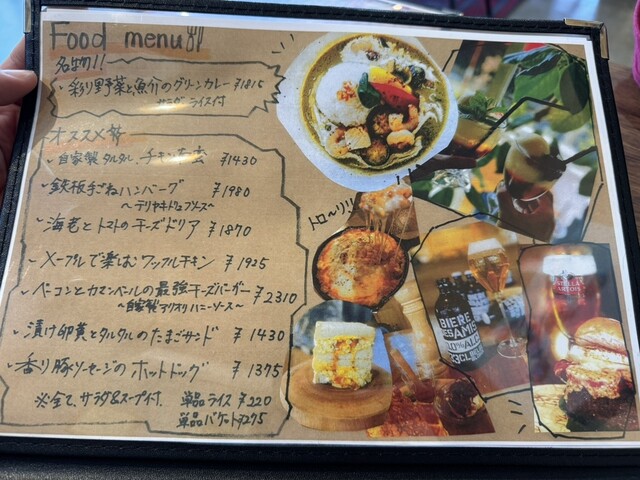 Food menu
名物!!
彩り野菜と魚介のグリーンカレー ¥1815
サラダ ライス付
オススメ
自家製タルタル チキン南蛮 ¥1430
鉄板手ごねハンバーグ ¥1980
〜テリヤキ ソース〜
海老とトマトのチーズドリア ¥1870
メープルで楽しむワッフルチキン ¥1925
ベーコンとカマンベールの最強チーズバーガー ¥2310
〜自家製 ハニーソース〜
漬け卵黄とタルタルのたまごサンド ¥1430
香り豚ソーセージのホットドッグ ¥1375
※全て、サラダ&スープ付. 単品ライス ¥220
単品バゲット ¥275
トロ〜リ
BIERE
DES AMIS
STELLA
ARTOIS